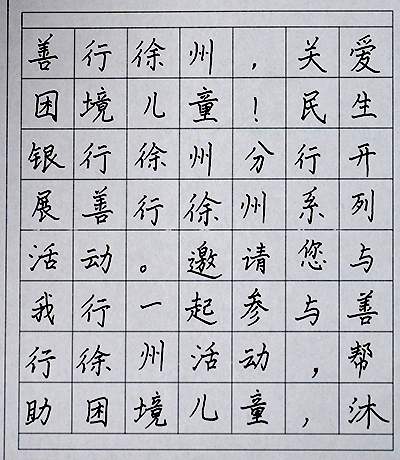 善行徐州，关爱
困境儿童！民生
银行徐州分行开
展善行徐州系列
活动。邀请您与
我行一起参与善
行徐州活动，帮
助困境儿童，沐